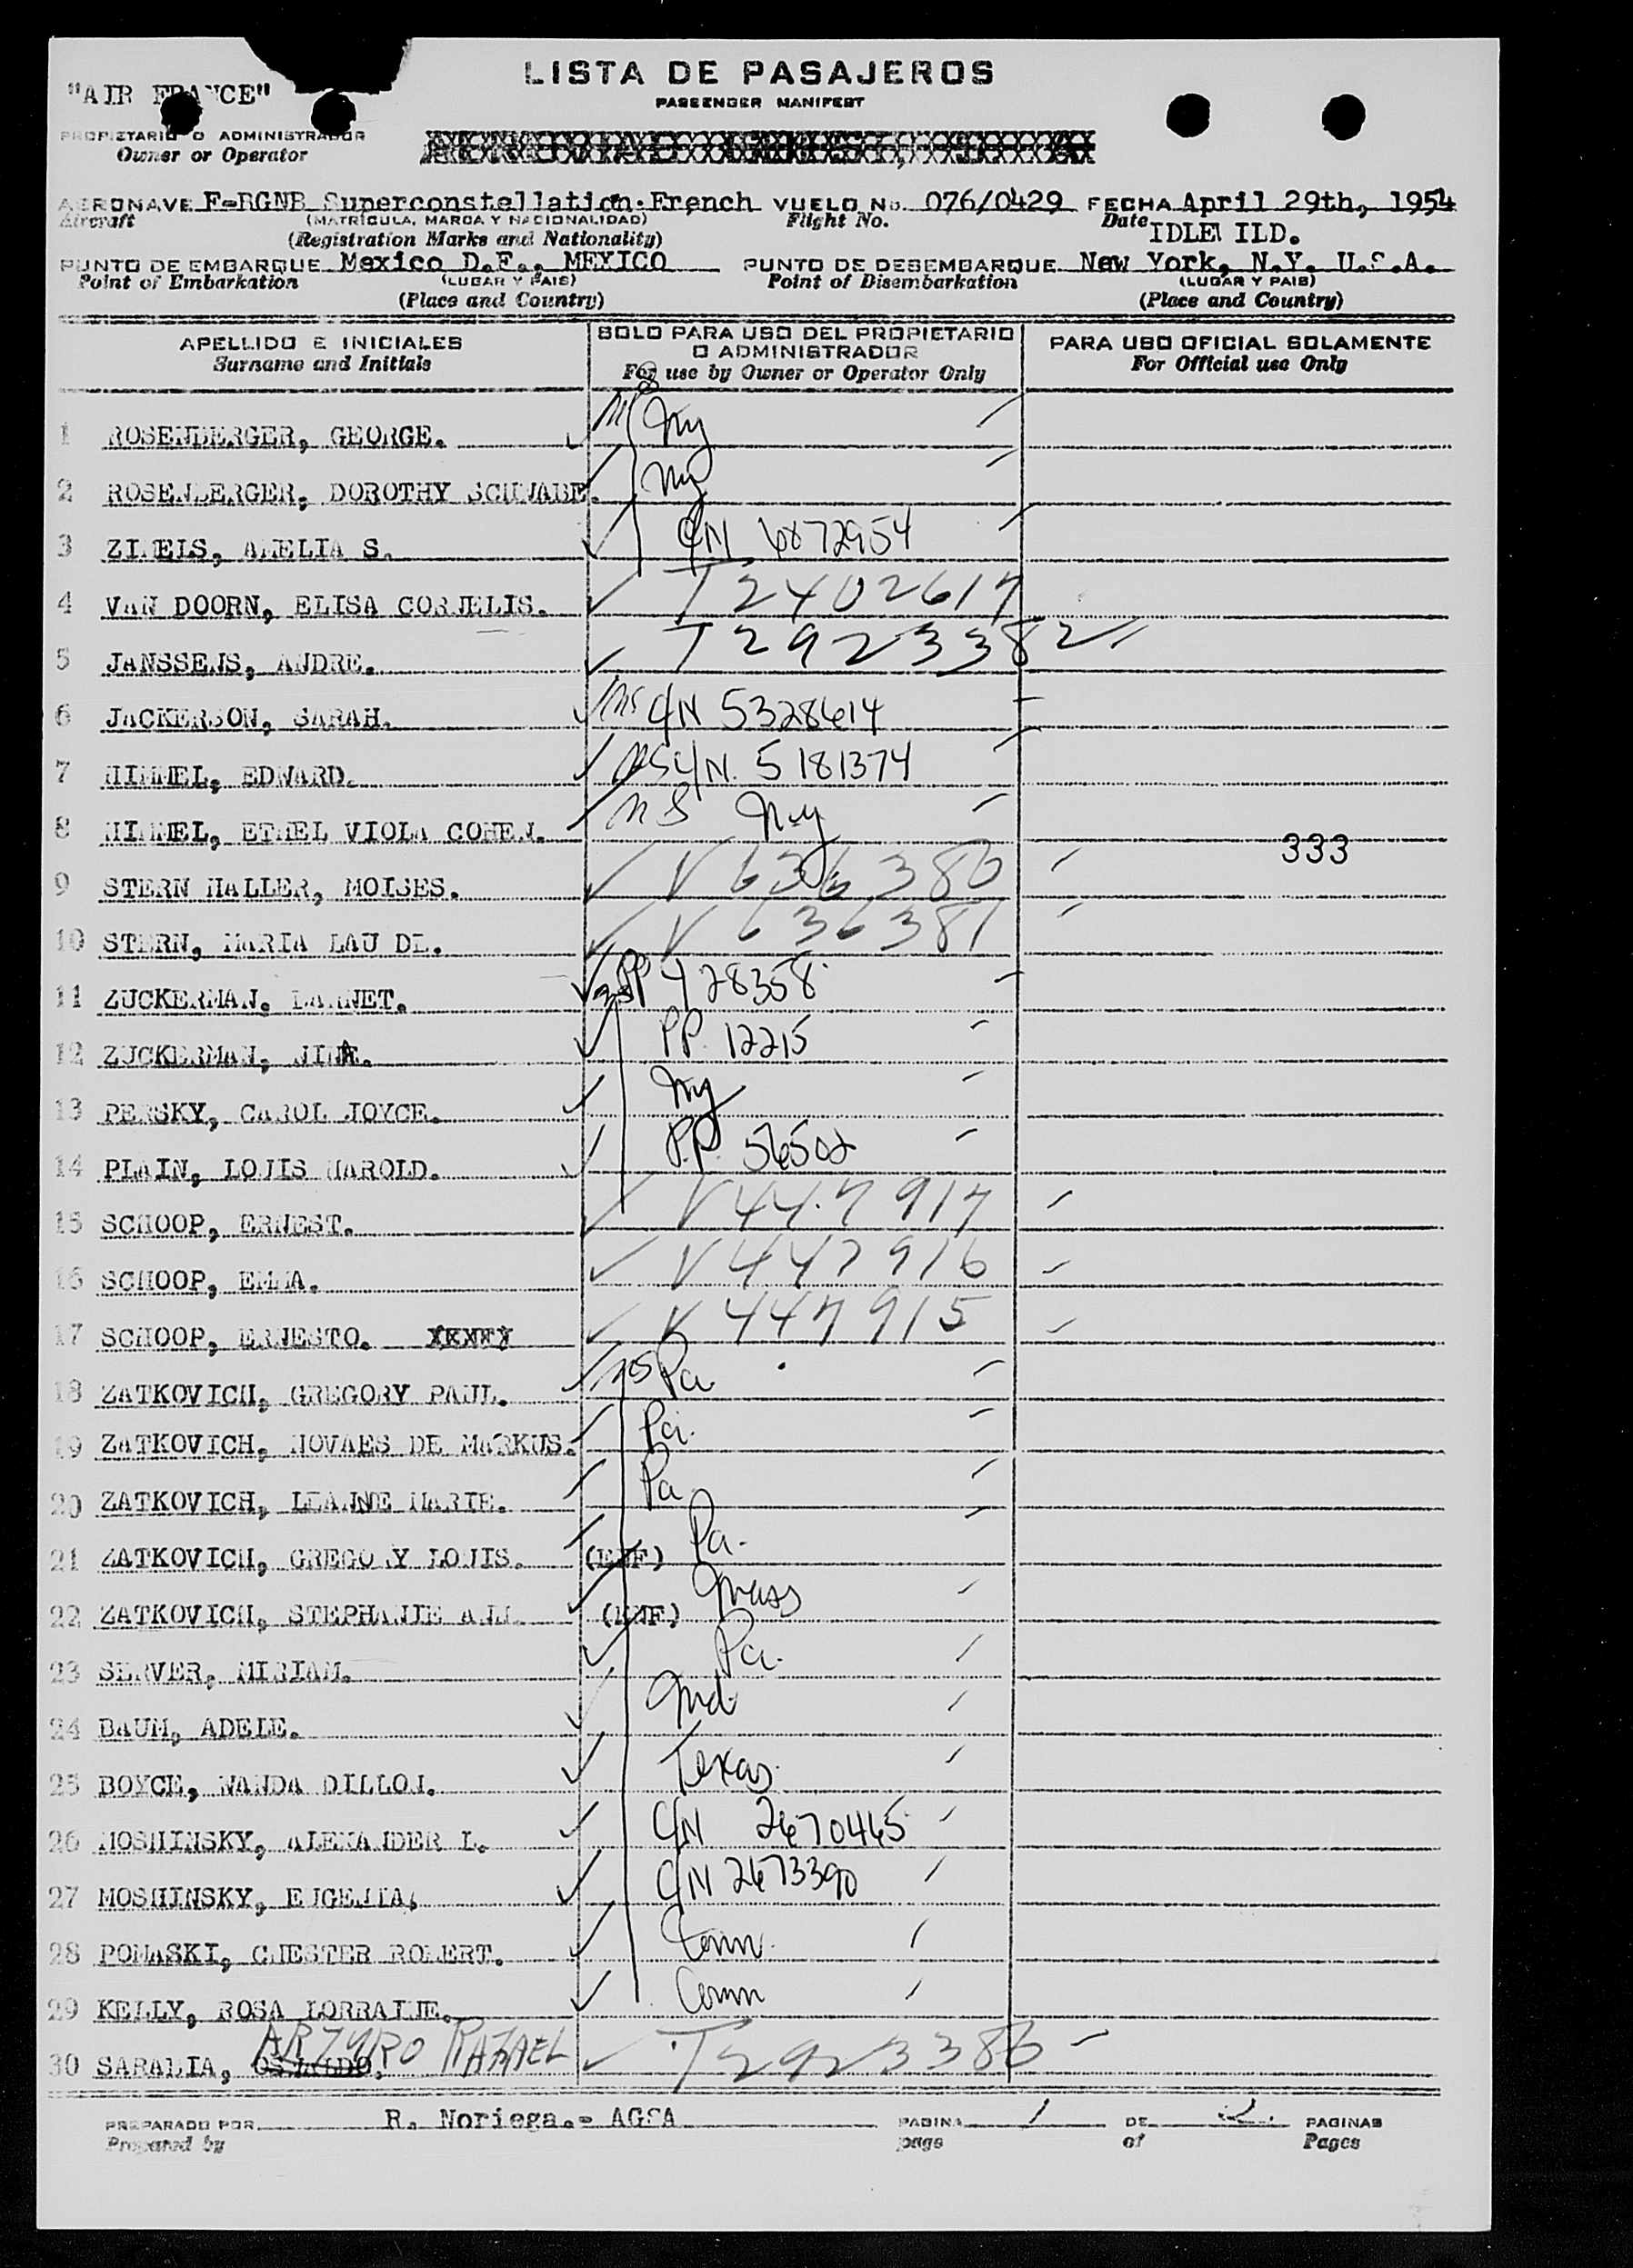 LISTA DE PASAJEROS
"AIR FRANCE"
PASSENGER MANIFEST
PROPIETARIO O ADMINISTRADOR
Owner or Operator
AERONAVE F-BGNB Superconstellation-French VUELO No. 076/0429 FECHA April 29th, 1954
Aircraft (MATRÍCULA, MARCA Y NACIONALIDAD) Flight No. Date
(Registration Marks and Nationality) IDLE ILD.
PUNTO DE EMBARQUE Mexico D.F., MEXICO PUNTO DE DESEMBARQUE New York, N.Y. U.S.A.
Point of Embarkation (LUGAR Y PAIS) Point of Disembarkation (LUGAR Y PAIS)
(Place and Country) (Place and Country)
APELLIDO E INICIALES SOLO PARA USO DEL PROPIETARIO O ADMINISTRADOR PARA USO OFICIAL SOLAMENTE
Surname and Initials For use by Owner or Operator Only For Official use Only
1 ROSENBERGER, GEORGE. NY
2 ROSENBERGER, DOROTHY SCHWABE. NY
3 AMELIA S. C/N 6872954
4 VAN DOORN, ELISA CORNELIS. T2402617
5 JANSSENS, ANDRE. T2923382
6 JACKERSON, SARAH. C/N 5328614
7 HIMMEL, EDWARD. C/N. 5181374
8 HIMMEL, ETHEL VIOLA COHEN. N.Y 333
9 STERN HALLER, MOISES. V636380
10 STERN, MARIA LAU DE. V636381
11 ZUCKERMAN. PP 428358
12 ZUCKERMAN, NINA. PP. 12215
13 PERSKY, CAROL JOYCE. NY
14 PLAIN, LOUIS HAROLD. P.P. 56502
15 SCHOOP, ERNEST. V447917
16 SCHOOP, EMMA. V447916
17 SCHOOP, ERNESTO. V447915
18 ZATKOVICH, GREGORY PAUL. Pa.
19 ZATKOVICH, NOVAES DE MARKUS. Pa.
20 ZATKOVICH, LEANNE MARIE. Pa.
21 ZATKOVICH, GREGORY LOUIS. (INF) Pa.
22 ZATKOVICH, STEPHANIE ANN. (INF) Mass
23 SERVER, MIRIAM. Pa.
24 BAUM, ADELE. Ind.
25 BOYCE, WANDA DILLON. Texas.
26 MOSHINSKY, ALEXANDER L. C/N 2670465
27 MOSHINSKY, EUGENIA, C/N 2673390
28 POMASKI, CHESTER ROBERT. Conn.
29 KELLY, ROSA LORRAINE. Conn
ARTURO RAFAEL
30 SARALIA, T2923386
PREPARADO POR R. Noriega.- AGSA PAGINA 1 DE 2. PAGINAS
Prepared by page of Pages